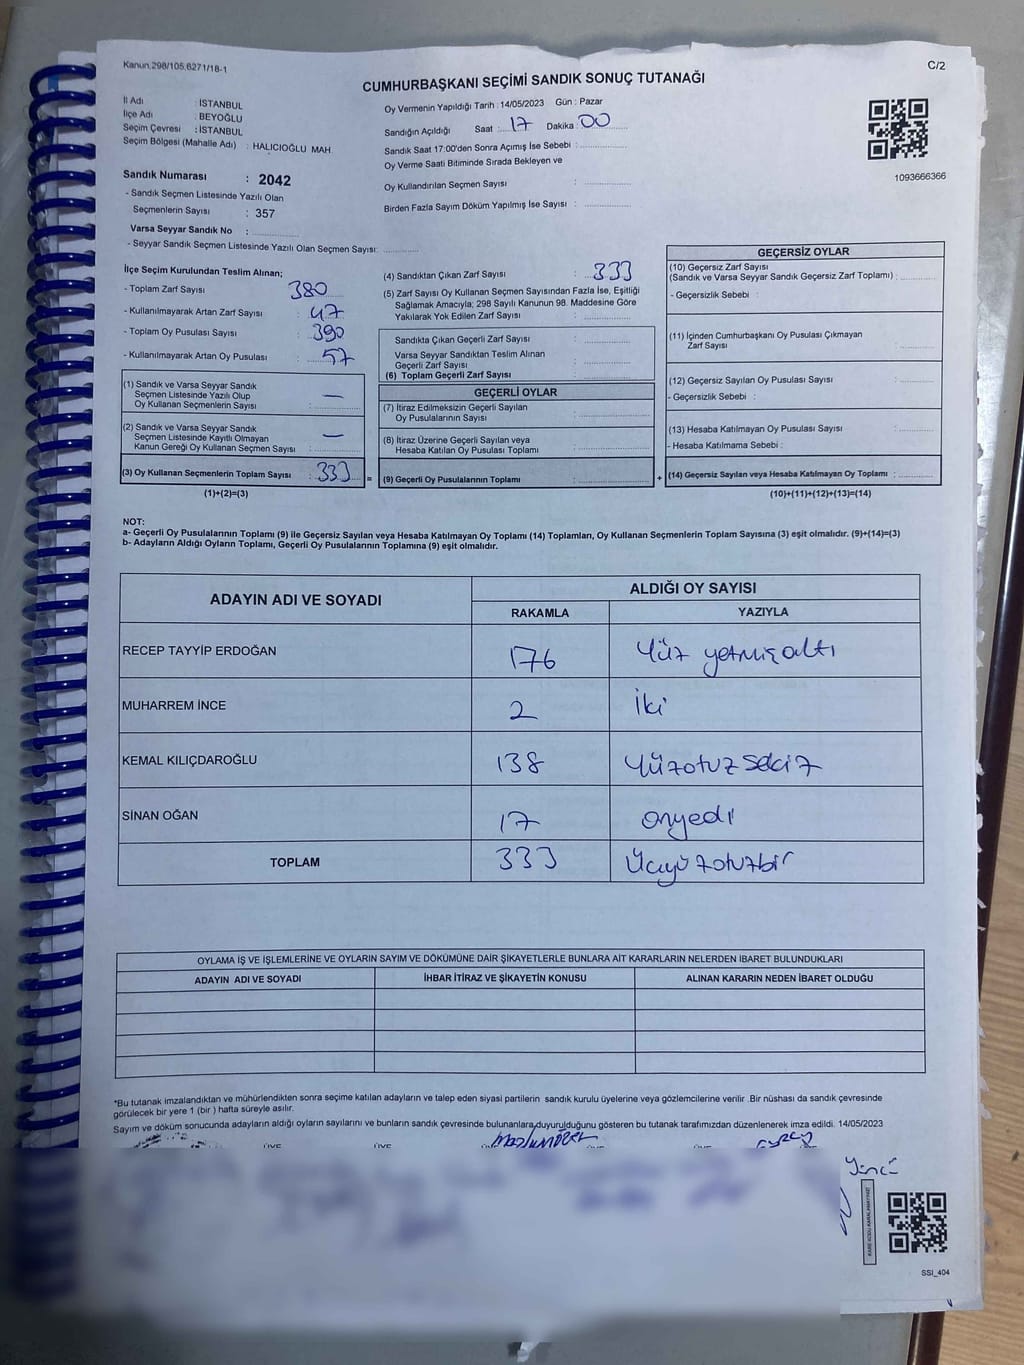 Kanun,298/105,6271/18-1
C/2
CUMHURBAŞKANI SEÇİMİ SANDIK SONUÇ TUTANAĞI
İl Adı : İSTANBUL
İlçe Adı : BEYOĞLU
Seçim Çevresi : İSTANBUL
Seçim Bölgesi (Mahalle Adı) : HALICIOĞLU MAH.
Sandık Numarası : 2042
- Sandık Seçmen Listesinde Yazılı Olan
Seçmenlerin Sayısı : 357
Varsa Seyyar Sandık No :
- Seyyar Sandık Seçmen Listesinde Yazılı Olan Seçmen Sayısı:
Oy Vermenin Yapıldığı Tarih : 14/05/2023 Gün : Pazar
Sandığın Açıldığı Saat : 17 Dakika : 00
Sandık Saat 17:00'den Sonra Açımış İse Sebebi :
Oy Verme Saati Bitiminde Sırada Bekleyen ve
Oy Kullandırılan Seçmen Sayısı :
Birden Fazla Sayım Döküm Yapılmış İse Sayısı :
1093666366
İlçe Seçim Kurulundan Teslim Alınan;
- Toplam Zarf Sayısı : 380
- Kullanılmayarak Artan Zarf Sayısı : 47
- Toplam Oy Pusulası Sayısı : 390
- Kullanılmayarak Artan Oy Pusulası : 57
(1) Sandık ve Varsa Seyyar Sandık
Seçmen Listesinde Yazılı Olup
Oy Kullanan Seçmenlerin Sayısı : —
(2) Sandık ve Varsa Seyyar Sandık
Seçmen Listesinde Kayıtlı Olmayan
Kanun Gereği Oy Kullanan Seçmen Sayısı : —
(3) Oy Kullanan Seçmenlerin Toplam Sayısı : 333 =
(1)+(2)=(3)
(4) Sandıktan Çıkan Zarf Sayısı : 333
(5) Zarf Sayısı Oy Kullanan Seçmen Sayısından Fazla İse, Eşitliği
Sağlamak Amacıyla; 298 Sayılı Kanunun 98. Maddesine Göre
Yakılarak Yok Edilen Zarf Sayısı :
Sandıkta Çıkan Geçerli Zarf Sayısı :
Varsa Seyyar Sandıktan Teslim Alınan
Geçerli Zarf Sayısı :
(6) Toplam Geçerli Zarf Sayısı :
GEÇERLİ OYLAR
(7) İtiraz Edilmeksizin Geçerli Sayılan
Oy Pusulalarının Sayısı :
(8) İtiraz Üzerine Geçerli Sayılan veya
Hesaba Katılan Oy Pusulası Toplamı :
(9) Geçerli Oy Pusulalarının Toplamı : +
GEÇERSİZ OYLAR
(10) Geçersiz Zarf Sayısı
(Sandık ve Varsa Seyyar Sandık Geçersiz Zarf Toplamı) :
- Geçersizlik Sebebi :
(11) İçinden Cumhurbaşkanı Oy Pusulası Çıkmayan
Zarf Sayısı :
(12) Geçersiz Sayılan Oy Pusulası Sayısı :
- Geçersizlik Sebebi :
(13) Hesaba Katılmayan Oy Pusulası Sayısı :
- Hesaba Katılmama Sebebi :
(14) Geçersiz Sayılan veya Hesaba Katılmayan Oy Toplamı :
(10)+(11)+(12)+(13)=(14)
NOT:
a- Geçerli Oy Pusulalarının Toplamı (9) ile Geçersiz Sayılan veya Hesaba Katılmayan Oy Toplamı (14) Toplamları, Oy Kullanan Seçmenlerin Toplam Sayısına (3) eşit olmalıdır. (9)+(14)=(3)
b- Adayların Aldığı Oyların Toplamı, Geçerli Oy Pusulalarının Toplamına (9) eşit olmalıdır.
ADAYIN ADI VE SOYADI ALDIĞI OY SAYISI
RAKAMLA YAZIYLA
RECEP TAYYİP ERDOĞAN 176 Yüz yetmiş altı
MUHARREM İNCE 2 İki
KEMAL KILIÇDAROĞLU 138 Yüzotuz sekiz
SİNAN OĞAN 17 onyedi
TOPLAM 333 Üçyüzotuzbir
OYLAMA İŞ VE İŞLEMLERİNE VE OYLARIN SAYIM VE DÖKÜMÜNE DAİR ŞİKAYETLERLE BUNLARA AİT KARARLARIN NELERDEN İBARET BULUNDUKLARI
ADAYIN ADI VE SOYADI İHBAR İTİRAZ VE ŞİKAYETİN KONUSU ALINAN KARARIN NEDEN İBARET OLDUĞU
*Bu tutanak imzalandıktan ve mühürlendikten sonra seçime katılan adayların ve talep eden siyasi partilerin sandık kurulu üyelerine veya gözlemcilerine verilir .Bir nüshası da sandık çevresinde
görülecek bir yere 1 (bir ) hafta süreyle asılır.
Sayım ve döküm sonucunda adayların aldığı oyların sayılarını ve bunların sandık çevresinde bulunanlara duyurulduğunu gösteren bu tutanak tarafımızdan düzenlenerek imza edildi. 14/05/2023
ÜYE ÜYE
SSI_404